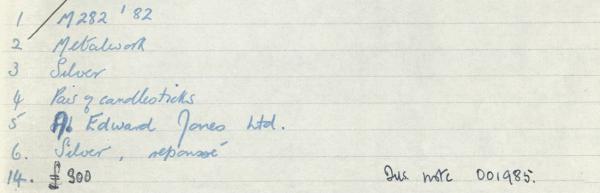 1 M282 '82
2 Metalwork
3 Silver
4 Pair of candlesticks
5 A. Edward Jones Ltd.
6. Silver, repoussé
14. 300 note 001985.